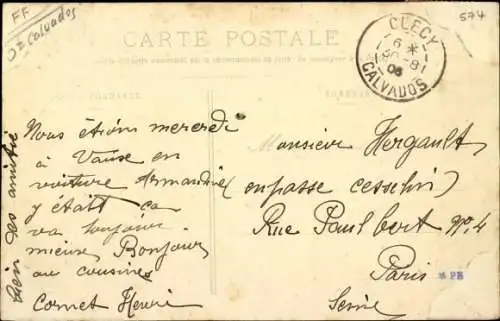 FF
Dt Calvados
574
CARTE POSTALE
CLECY
6 *
30-8
06
CALVADOS
Nous étions mercredi
à Vause en
voiture Armandine
y était ça
va toujours
mieux Bonjour
au cousines
Cornet Henri
bien des amitié
Monsieur Hergault
(enpasse cesselin)
Rue Paul bert No. 4
Paris
Seine
* PH